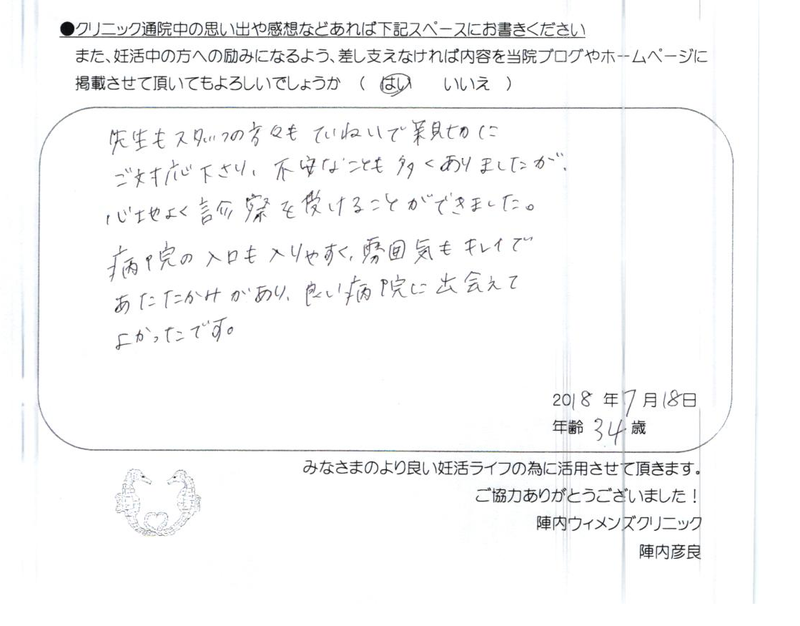 ●クリニック通院中の思い出や感想などあれば下記スペースにお書きください
また、妊活中の方への励みになるよう、差し支えなければ内容を当院ブログやホームページに
掲載させて頂いてもよろしいでしょうか （ はい いいえ ）
先生もスタッフの方々もていねいで親切に
ご対応下さり、不安なことも多くありましたが、
心地よく診察を受けることができました。
病院の入口も入りやすく、雰囲気もキレイで
あたたかみがあり、良い病院に出会えて
よかったです。
2018 年 7 月 18日
年齢 34 歳
みなさまのより良い妊活ライフの為に活用させて頂きます。
ご協力ありがとうございました！
陣内ウィメンズクリニック
陣内彦良